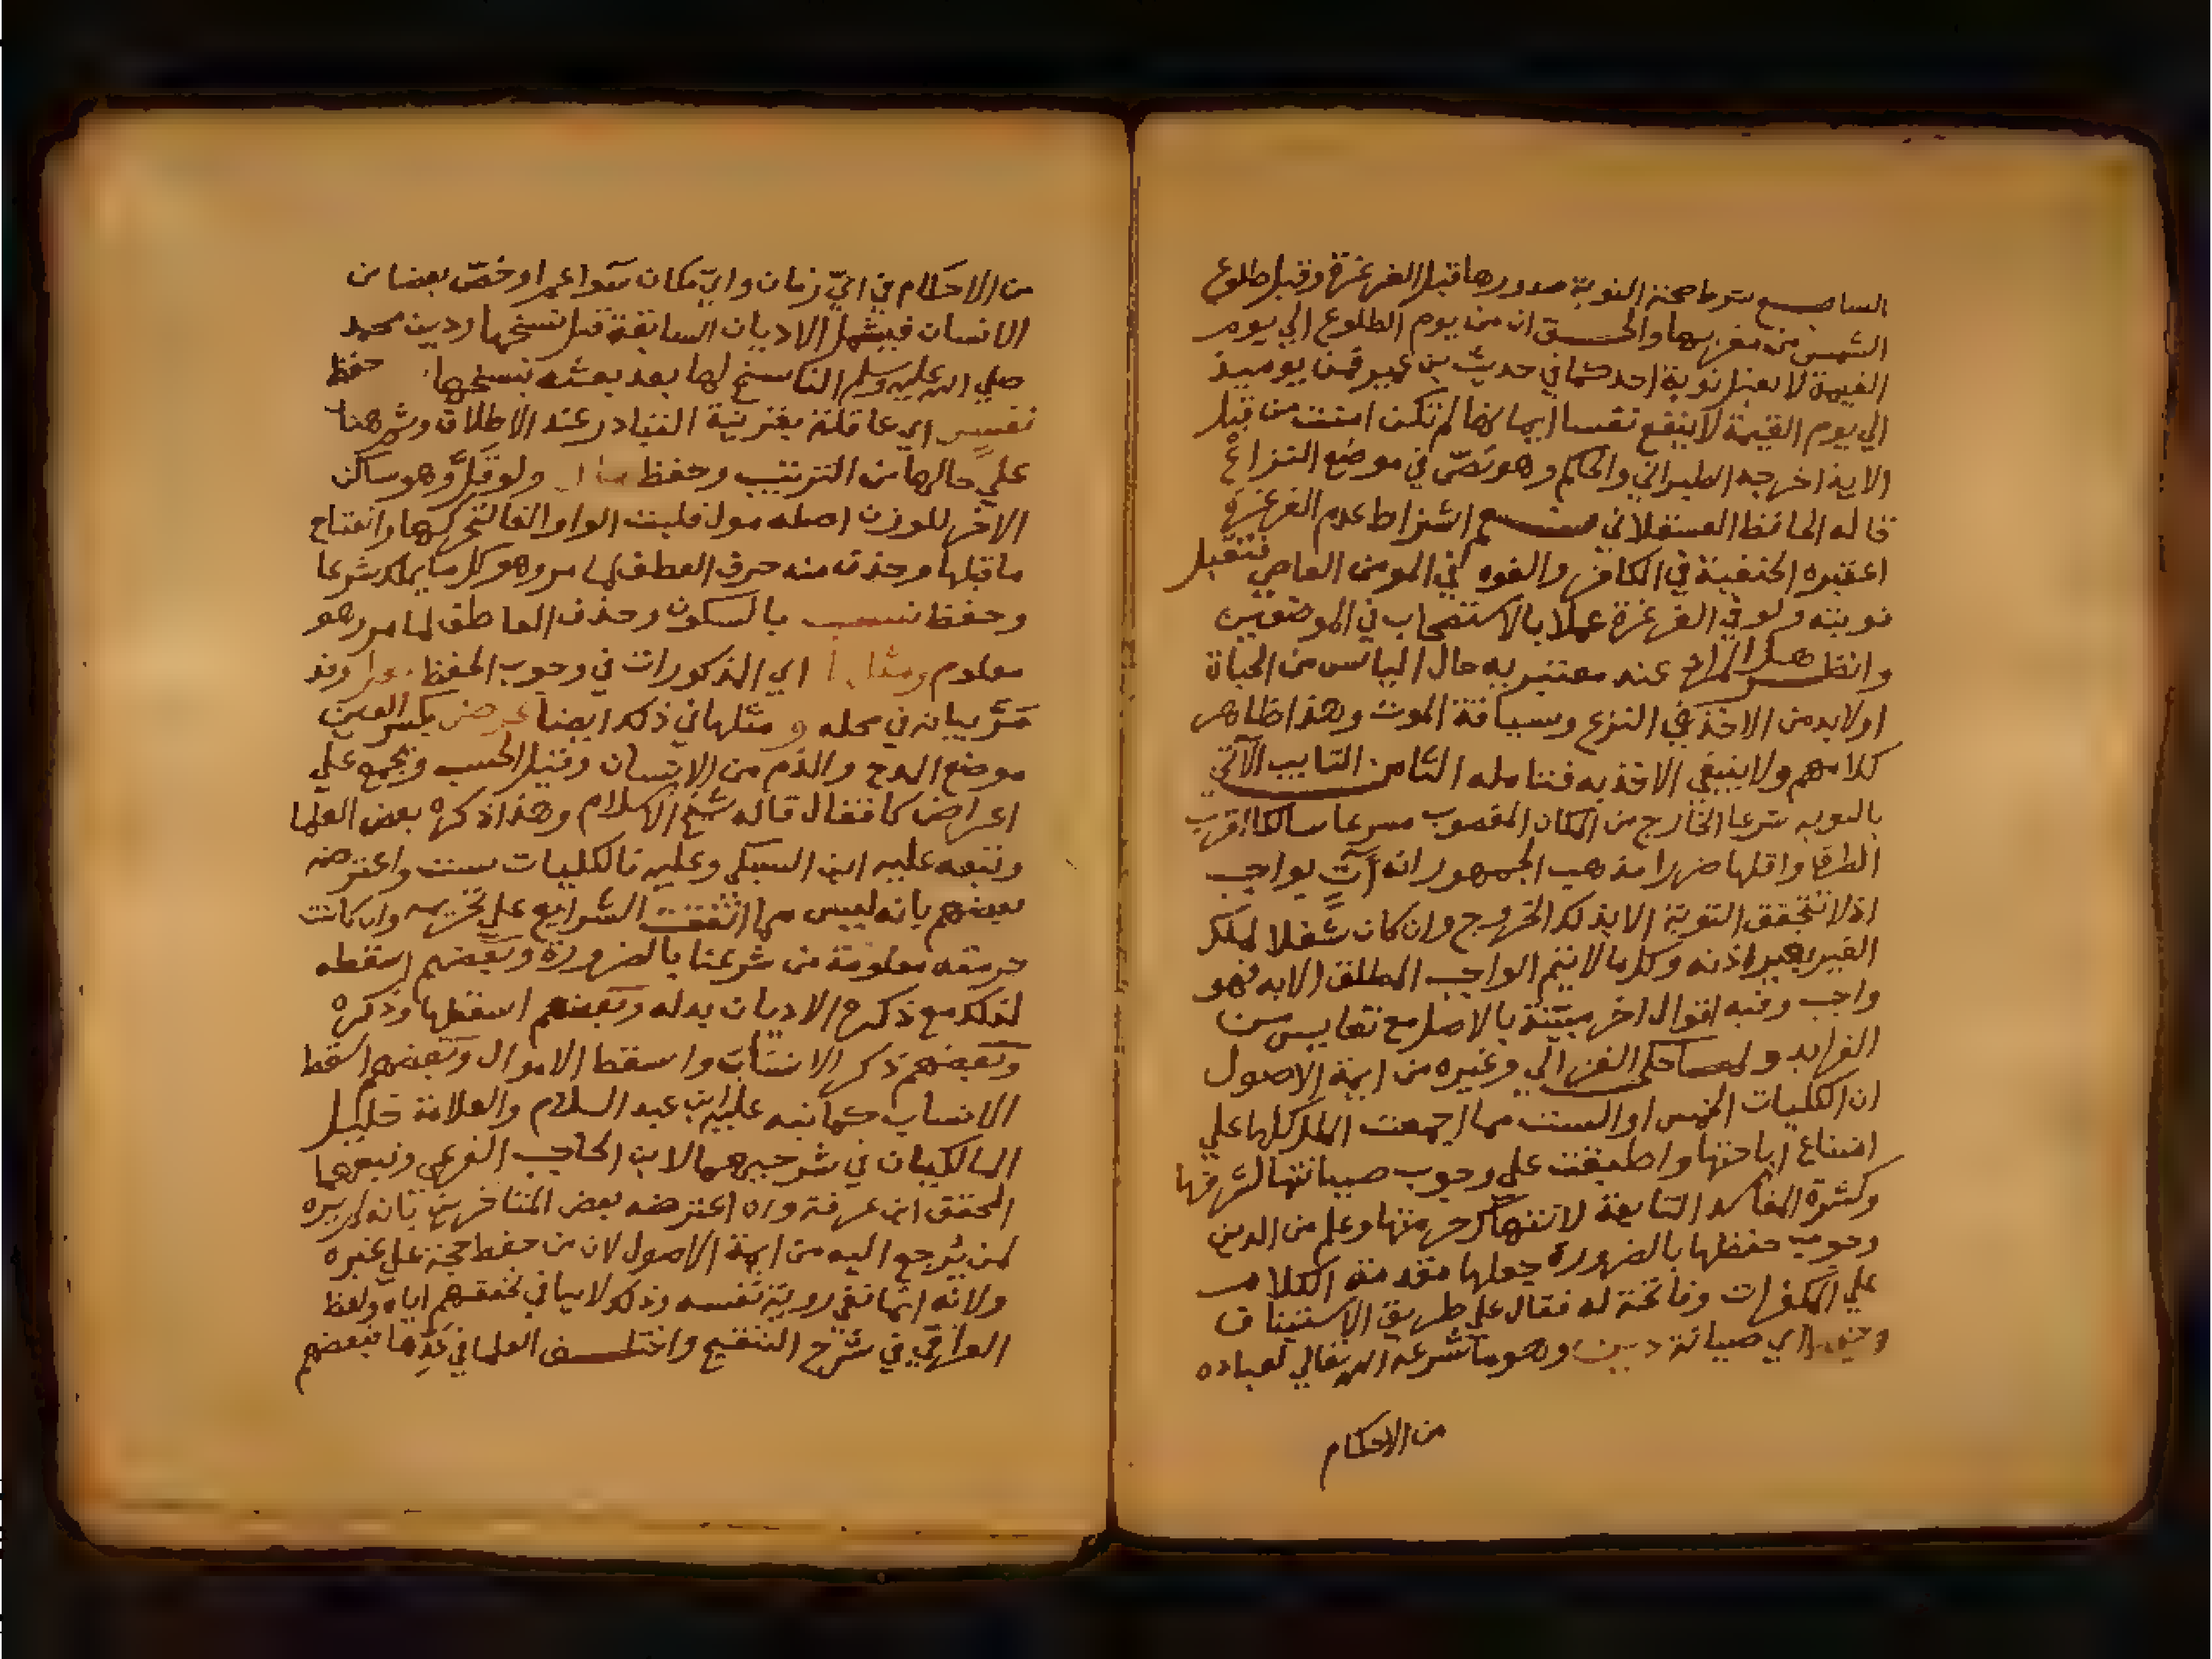 السابع شرط صحة التوبة صدورها قبل الغرغرة وقبل طلوع
الشمس من مغربها والحق ان من يوم الطلوع الي يوم
القيمة لا يقبل توبة احد كما في حديث بن عمير فمن يوميذ
الي يوم القيمة لا ينفع نفسا ايمانها لم تكن امنت من قبل
الاية اخرجه الطبراني والحاكم وهو نص في موضع النزاع
قاله الحافظ العسقلاني اشتراط عدم الغرغرة
اعتبره الحنفية في الكافر والغوه في المومن العاصي فتقبل
توبته ولو في الغرغرة عملا بالاستصحاب في الموضعين
وانظر هل المراد عند معتبريه حال الياس من الحياة
اولابد من الاخذ في النزع وسياقة الموت وهذا ظاهر
كلامهم ولا ينبغي الاخذ به فتامله الثامن التايب الآتي
بالتوبه شرعا الخارج من المكان المغصوب مسرعا سالكا اقرب
الطرق واقلها ضررا مذهب الجمهور انه آت بواجب
اذ لا تتحقق التوبة الا بذلك الخروج وان كان شغلا لملك
الغير بغير اذنه وكل ما لا يتم الواجب المطلق الا به فهو
واجب وفيه اقوال اخر مبينة بالاصل مع نفايس من
الفرايد ولما حكي الغزالي وغيره من ايمة الاصول
ان الكليات الخمس او الست مما اجمعت الملل كلها علي
امتناع اباحتها واطبقت علي وجوب صيانتها لشرفها
وكثرة المفاسد التابعة لانتهاك حرمتها وعلم من الدين
وجوب حفظها بالضرورة جعلها مقدمة الكلام
علي المكفرات وفاتحة له فقال علي طريق الاستيناف
وحفظ اي صيانة دين وهو ما شرعه الله تعالي لعباده
من الاحكام
من الاحكام في اي زمان واي مكان سوا عم او خص بعضا من
الانسان فيشمل الاديان السابقة قبل نسخها ودين محمد
صلي الله عليه وسلم الناسخ لها بعد بعثه بنسخها حفظ
نفس اي عاقلة بقرينة التبادر عند الاطلاق وثم هنا
علي حالها من الترتيب وحفظ مال ولو قل وهو ساكن
الاخر للوزن اصله مول قلبت الواو الفا لتحركها وانفتاح
ما قبلها وحذف منه حرف العطف لما مر وهو كل ما يملك شرعا
وحفظ نسب بالسكون وحذف العاطف لما مر وهو
معلوم ومثلها اي المذكورات في وجوب الحفظ وقد
مر بيانه في محله و مثلها في ذلك ايضا عرض بكسر العين
موضع المدح والذم من الانسان وقيل الحسب ويجمع علي
اعراض كاقفال قاله شيخ الاسلام وهذا ذكره بعض العلما
وتبعه عليه ابن السبكي وعليه فالكليات ست واعترضه
بعضهم بانه ليس مما اتفقت الشرايع علي تحريمه وان كانت
حرمته معلومة من شرعنا بالضرورة وبعضهم اسقطه
لذلك مع ذكره الاديان بدله وبعضهم اسقطها وذكره
وبعضهم ذكر الانساب واسقط الاموال وبعضهم اسقط
الانساب كما نبه عليه ابن عبد السلام والعلامة خليل
المالكيان في شرحيهما لابن الحاجب الفرعي وتبعهما
المحقق ابن عرفة وان اعترضه بعض المتاخرين بانه لم يره
لمن يرجع اليه من ايمة الاصول لان من حفظ حجة علي غيره
ولانه انما نفي روية نفسه وذلك لا ينافي تحققهم اياه ولفظ
العراقي في شرح التنقيح واختلف العلما في عدها فبعضهم